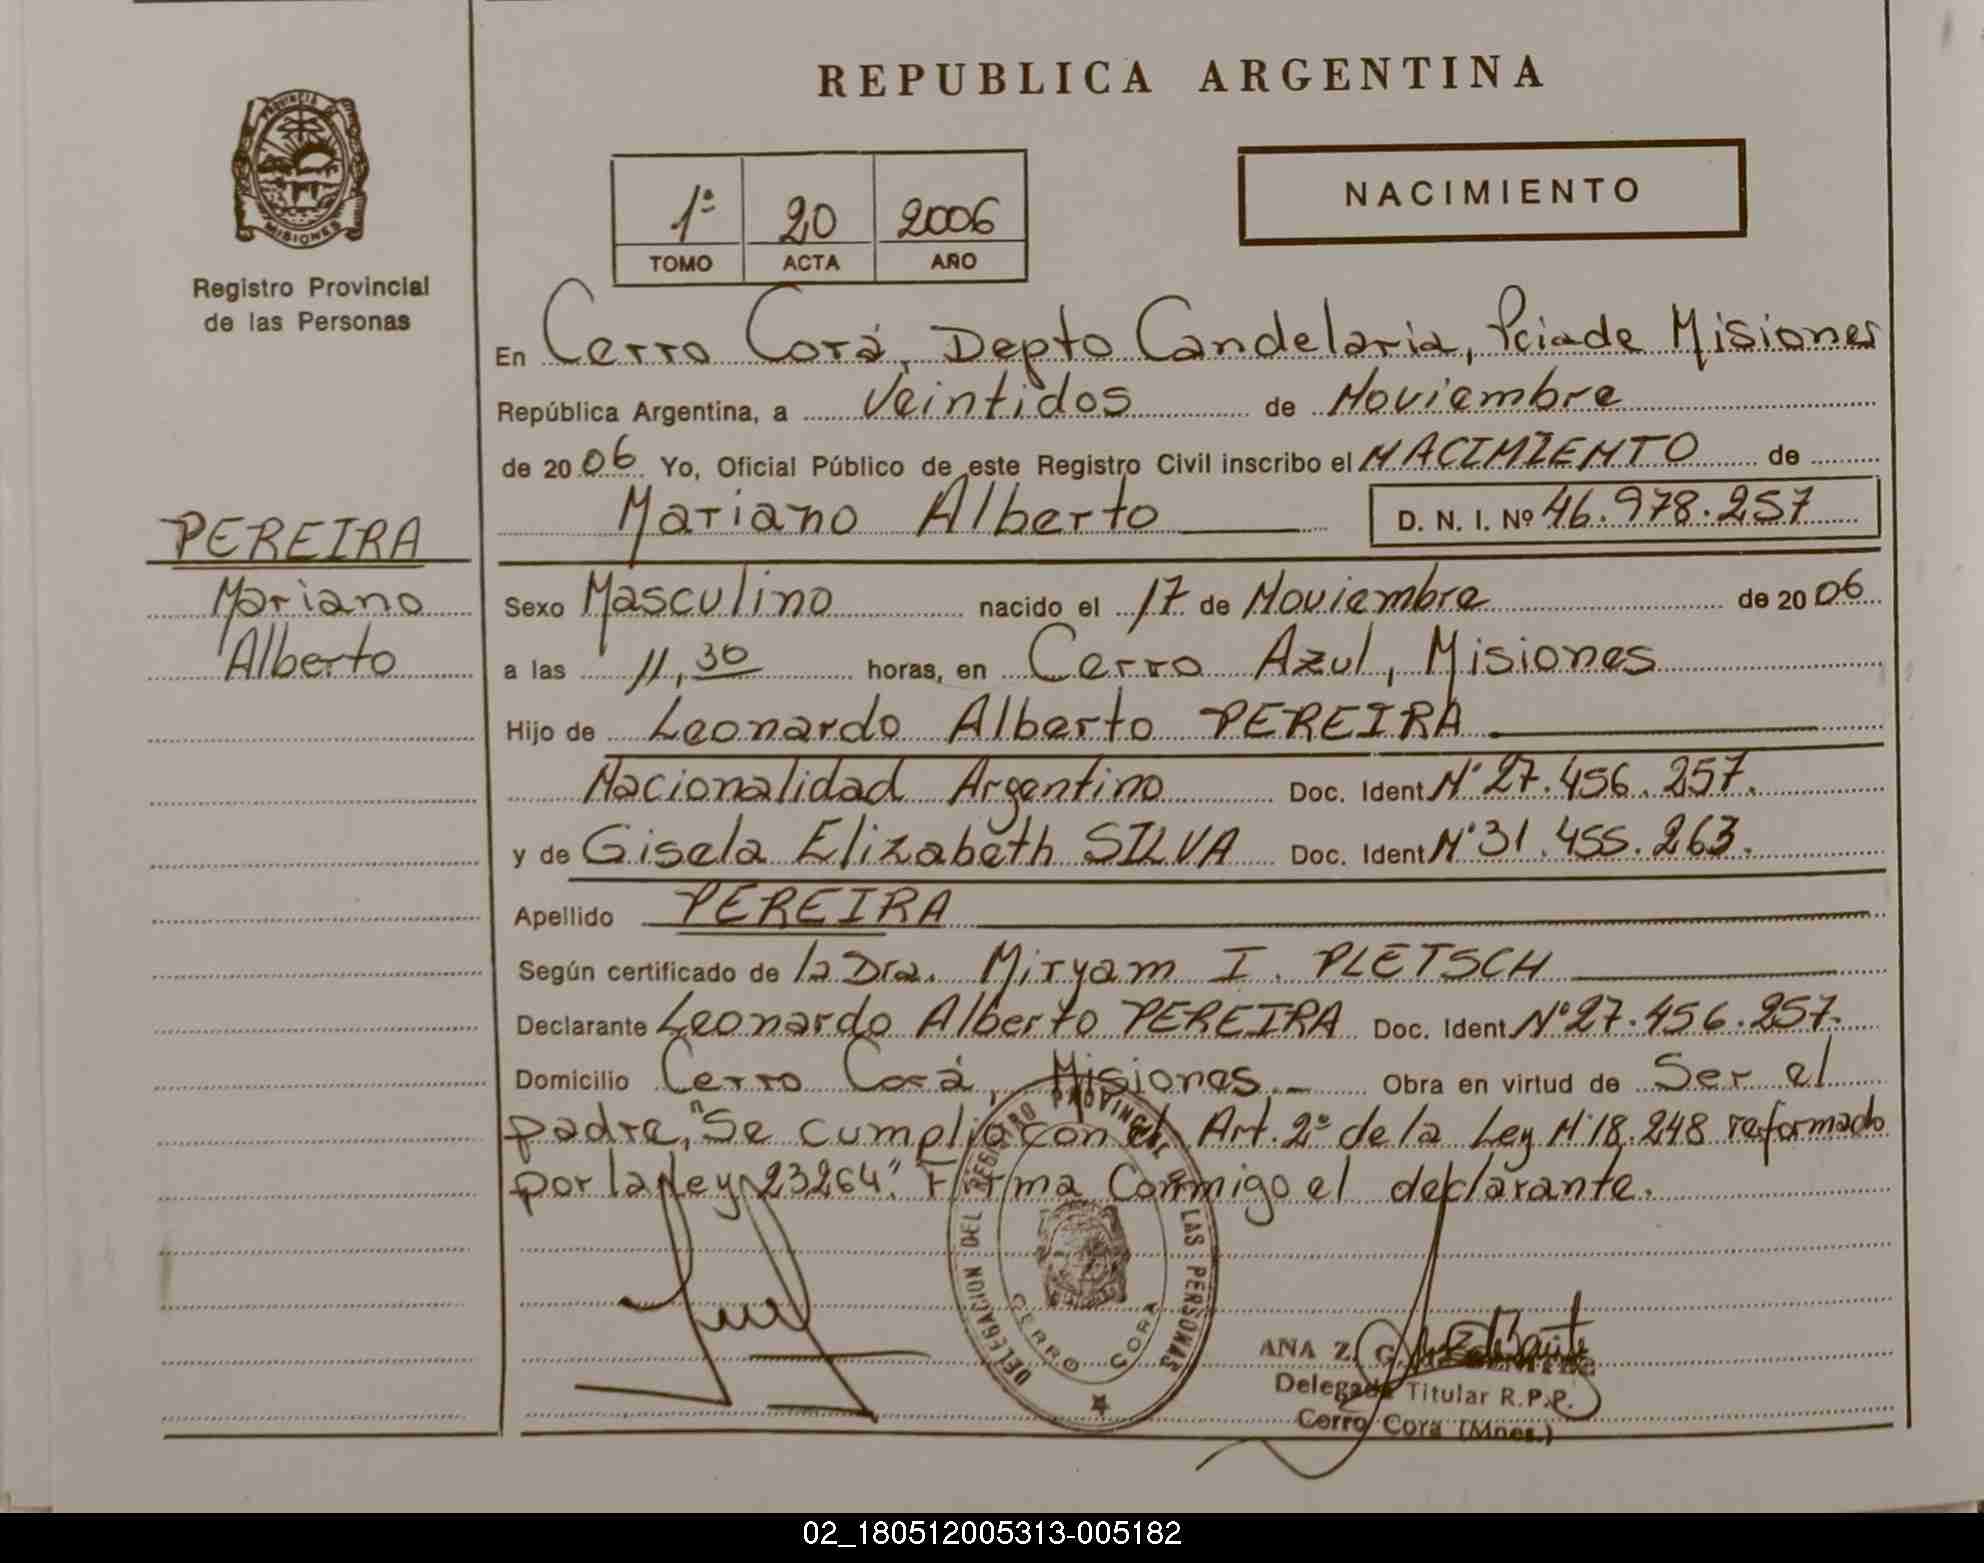 REPUBLICA ARGENTINA
PROVINCIA DE MISIONES
Registro Provincial
de las Personas
NACIMIENTO
1ª 20 2006
TOMO ACTA AÑO
En Cerro Corá, Depto Candelaria, Pcia de Misiones
República Argentina, a Veintidos de Noviembre
de 2006 Yo, Oficial Público de este Registro Civil inscribo el NACIMIENTO de
Mariano Alberto D. N. I. Nº 46.978.257
PEREIRA
Mariano
Alberto
Sexo Masculino nacido el 17 de Noviembre de 2006
a las 11,30 horas, en Cerro Azul, Misiones
Hijo de Leonardo Alberto PEREIRA
Nacionalidad Argentino Doc. Ident N° 27.456.257.
y de Gisela Elizabeth SILVA Doc. Ident N° 31.455.263.
Apellido PEREIRA
Según certificado de la Dra. Miryam I. PLETSCH
Declarante Leonardo Alberto PEREIRA Doc. Ident N° 27.456.257.
Domicilio Cerro Corá, Misiones.- Obra en virtud de Ser el
padre, "Se cumplió con el Art. 2º de la Ley N° 18.248 reformado
por la Ley 23264". Firma Conmigo el declarante.
DELEGACION DEL REGISTRO PROVINCIAL DE LAS PERSONAS
CERRO CORA
ANA Z. G.
Delegada Titular R.P.P.
Cerro Corá (Mnes.)
02_180512005313-005182